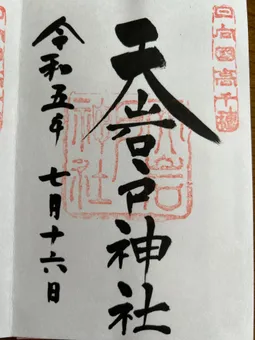 日向國高千穂
天岩戸神社
令和五年
七月十六日